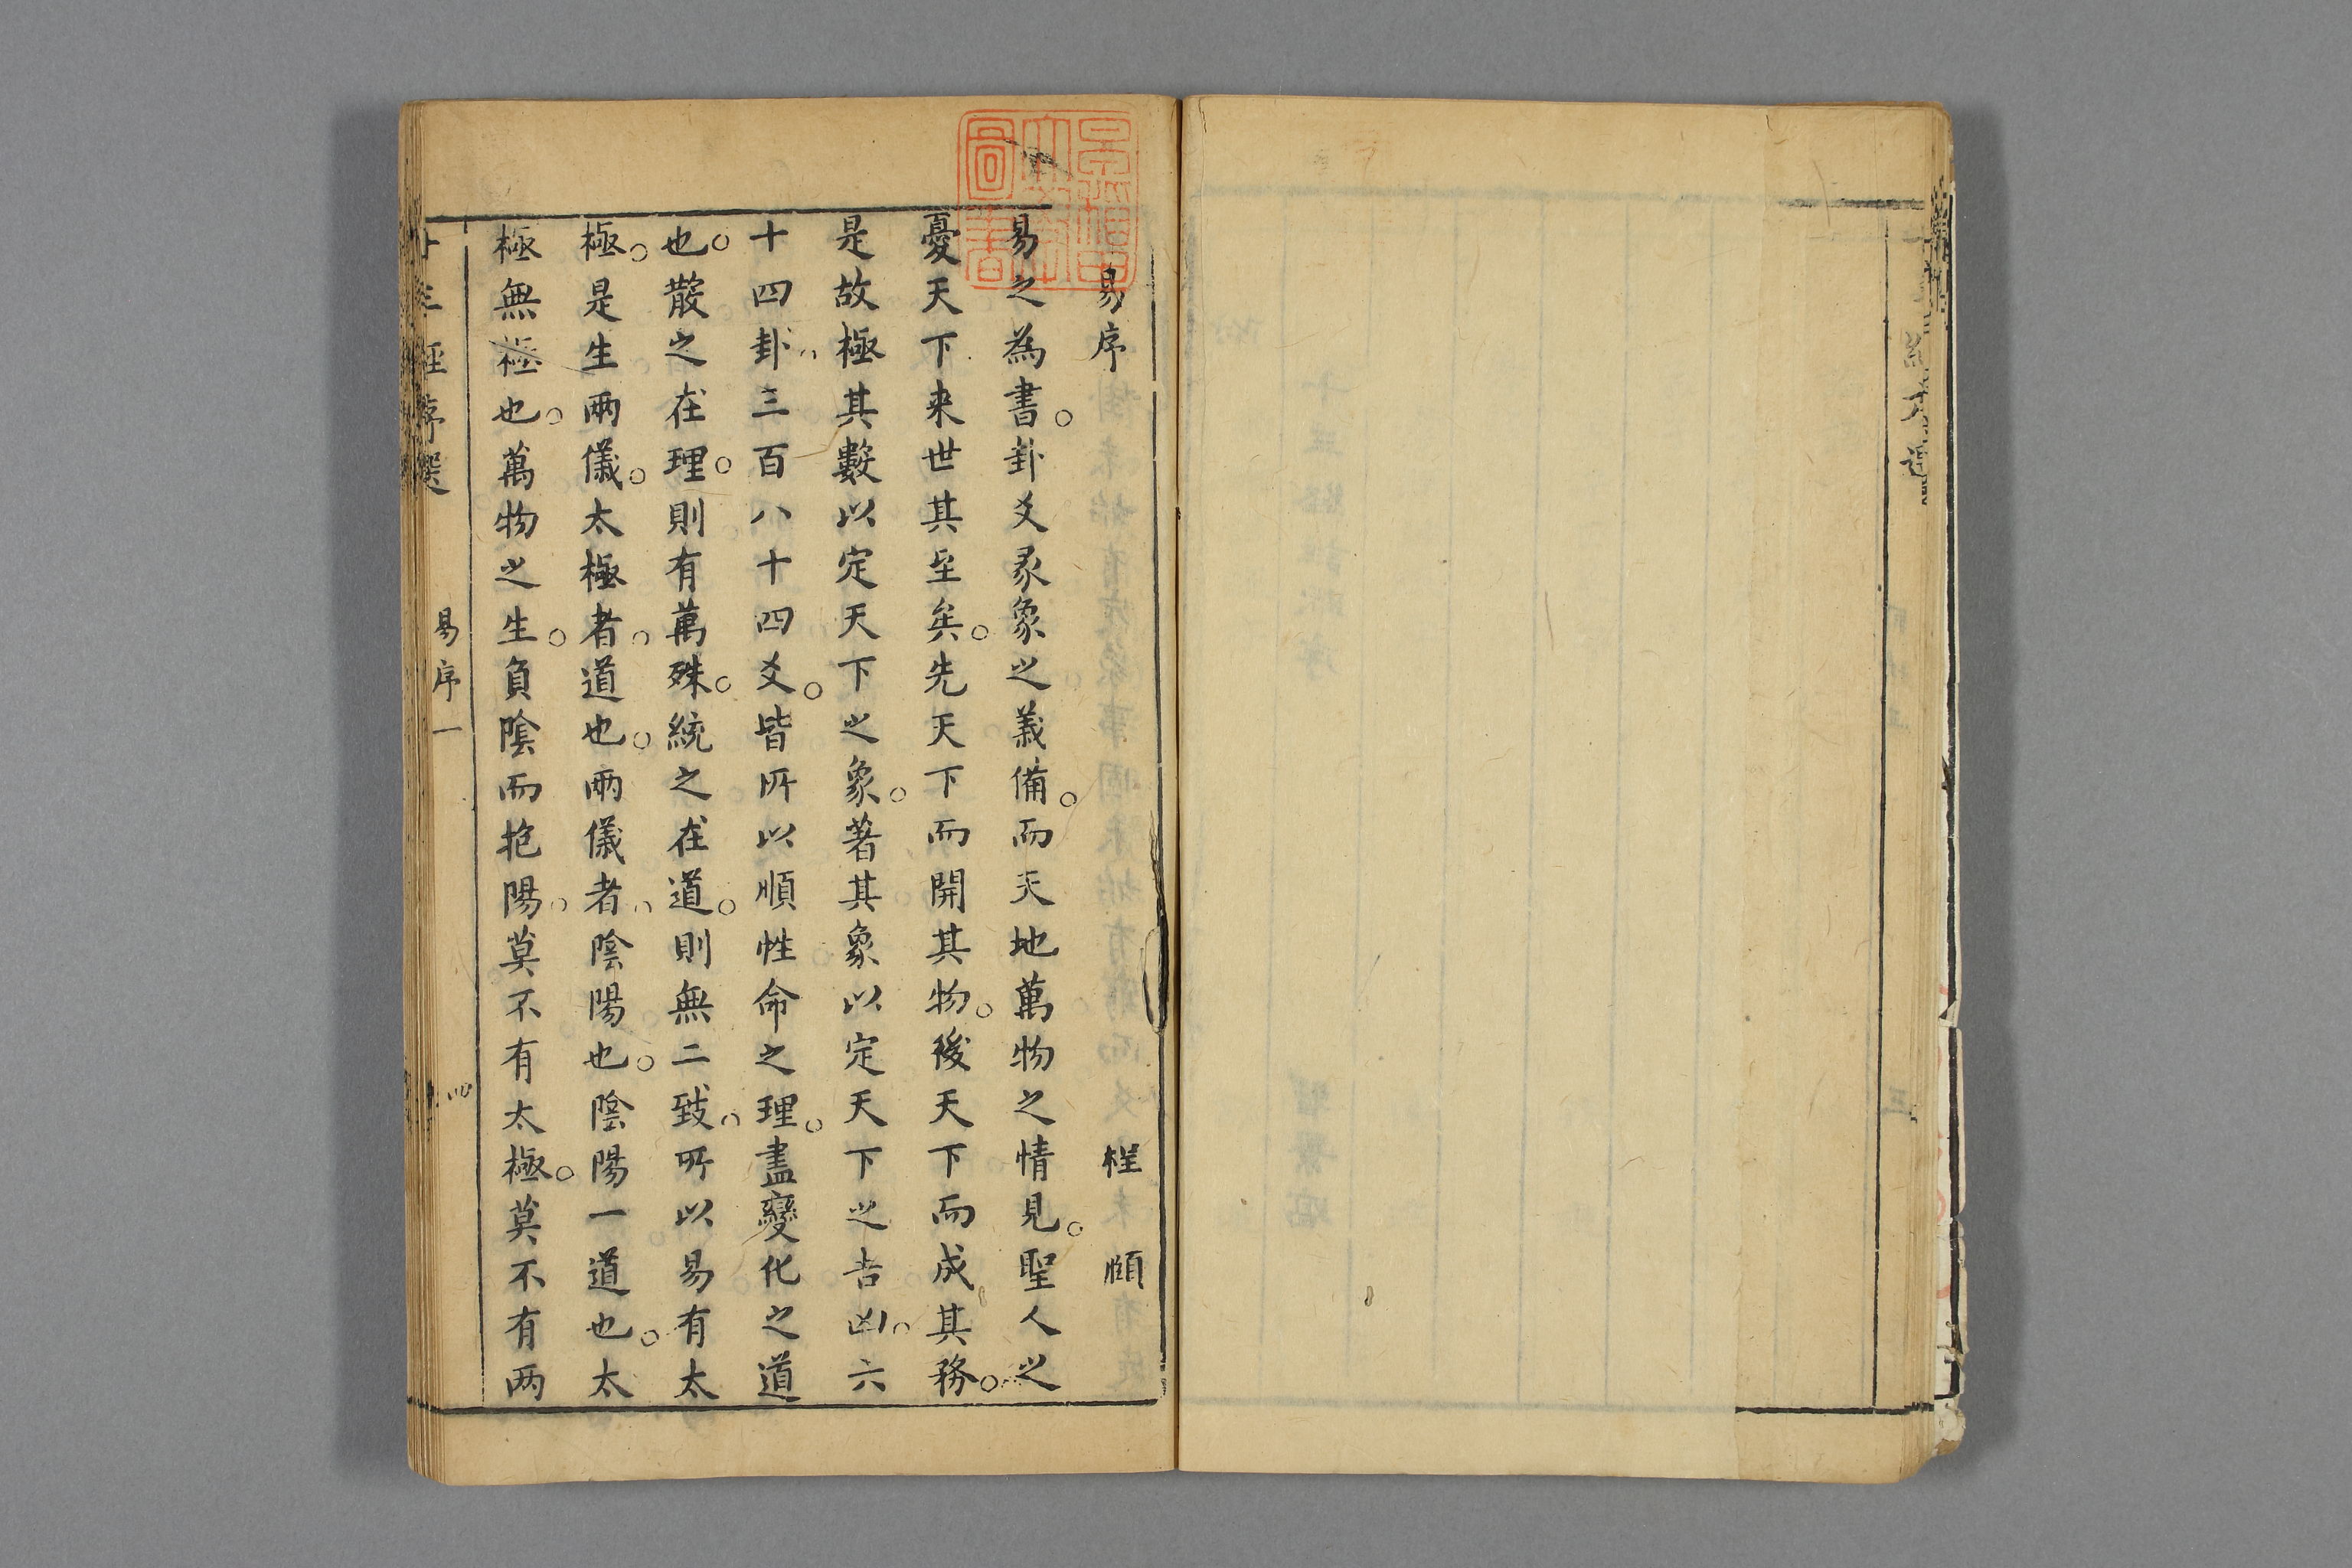 易序
程　頤
易之為書。卦爻彖象之義備。而天地萬物之情見。聖人之
憂天下来世其至矣。先天下而開其物。後天下而成其務。
是故極其數以定天下之象。著其象以定天下之吉凶。六
十四卦。三百八十四爻。皆所以順性命之理。盡變化之道
也。散之在理。則有萬殊。統之在道。則無二致。所以易有太
極。是生兩儀。太極者。道也。兩儀者。陰陽也。陰陽一道也。太
極無極也。萬物之生。負陰而抱陽。莫不有太極。莫不有两
十三經序選
易序一